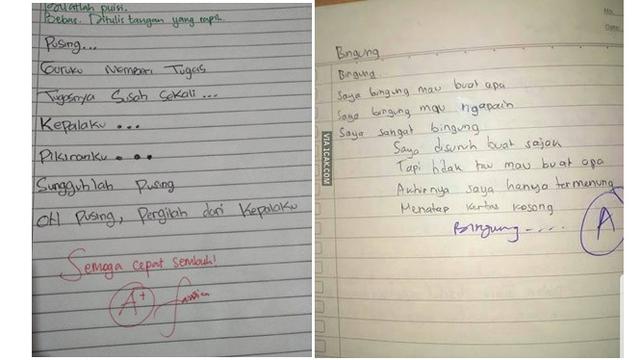 buatlah puisi.
Bebas. Ditulis tangan yang rapi.
Pusing...
Guruku Memberi Tugas
Tugasnya Susah Sekali...
Kepalaku...
Pikiranku...
Sungguhlah Pusing
Oh Pusing, Pergilah dari Kepalaku
Semoga cepat sembuh!
A+
No.
Date:
Bingung
Bingung
Saya bingung mau buat apa
Saya bingung mau ngapain
Saya sangat bingung
Saya disuruh buat sajak
Tapi tidak tau mau buat apa
Akhirnya saya hanya termenung
Menatap kertas kosong
Bingung.....
A
VIA 1CAK.COM